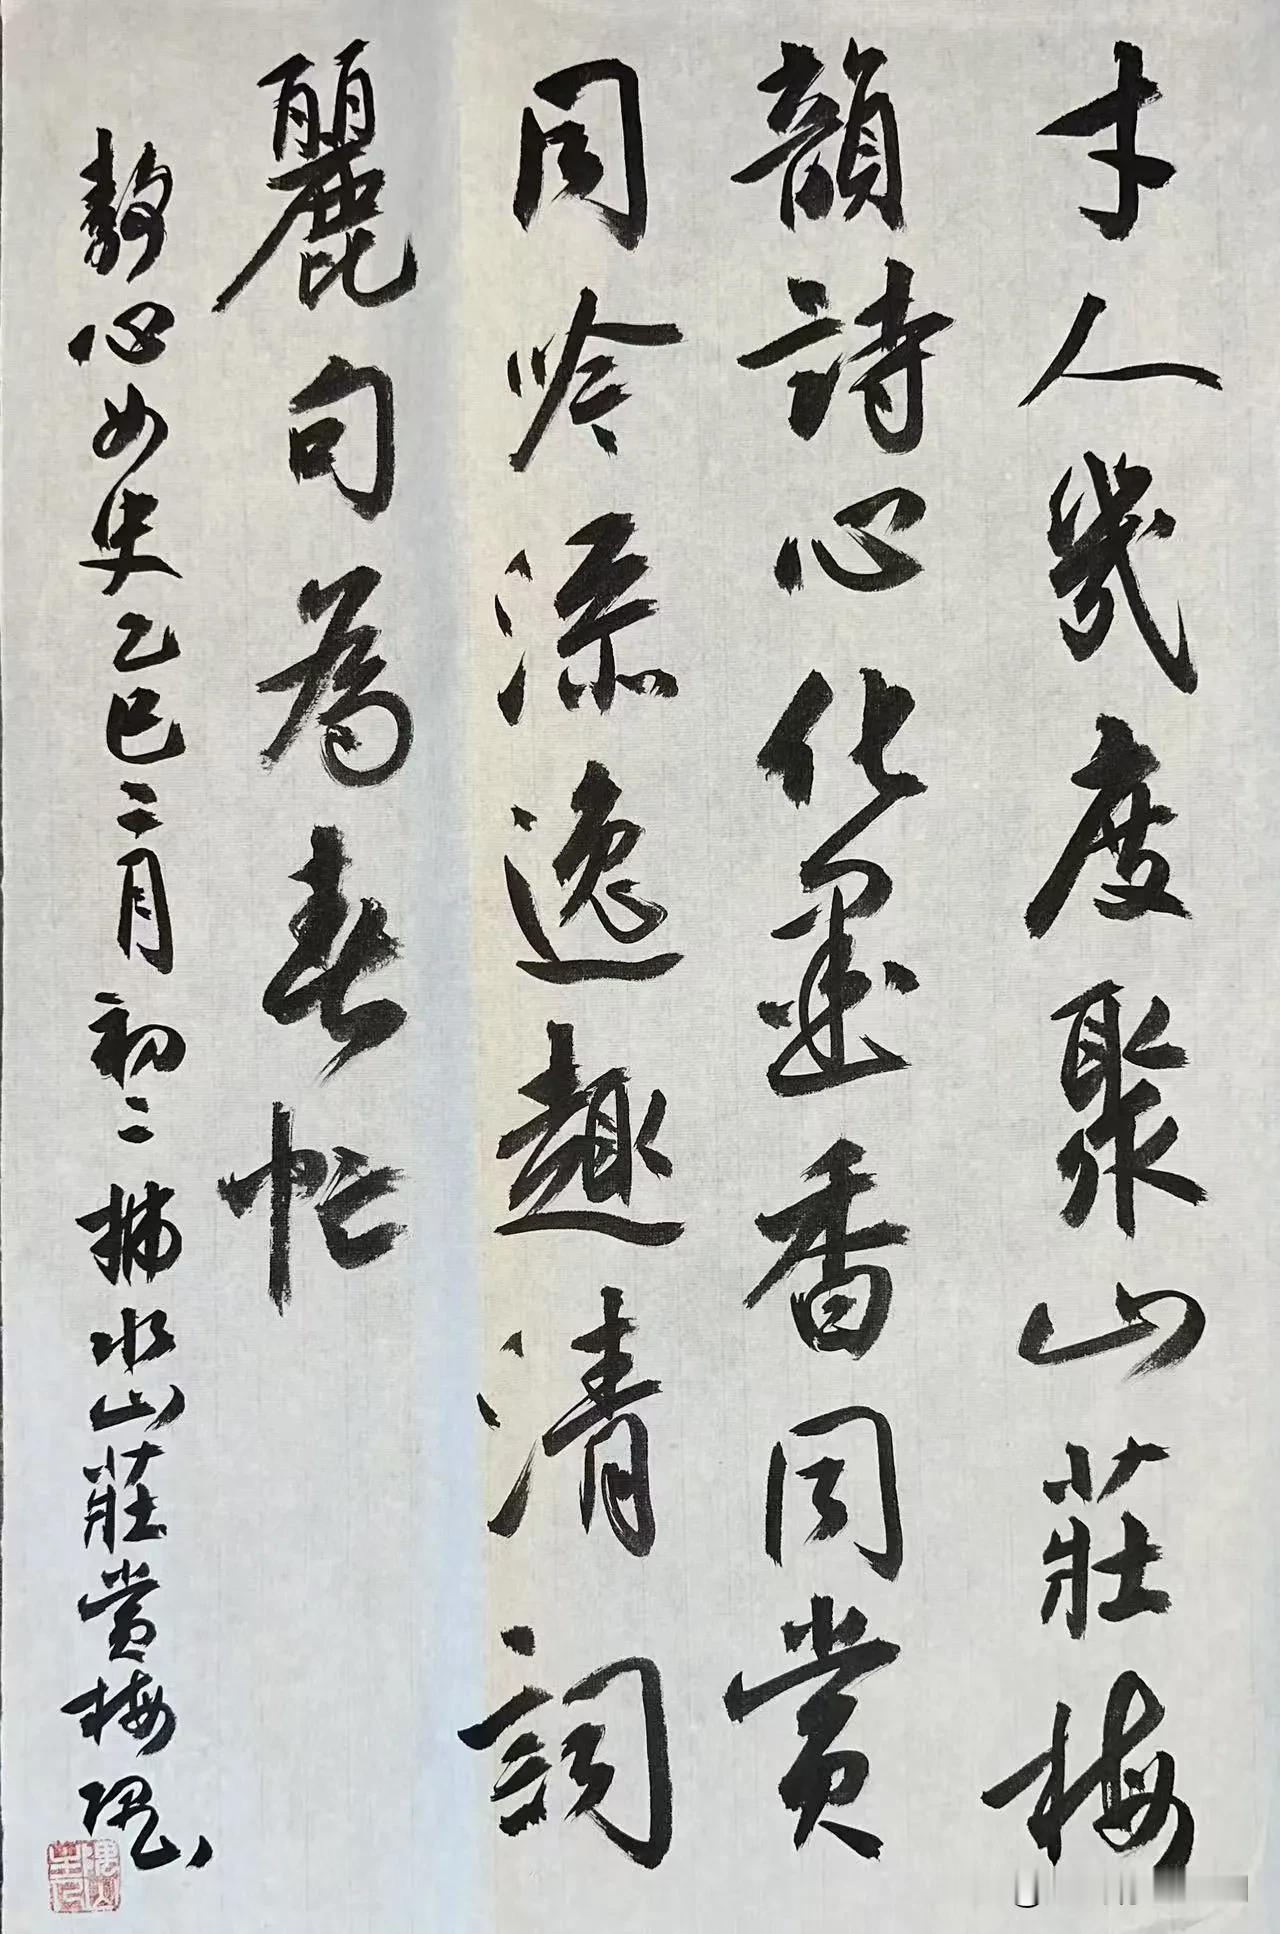 才人幾度聚山莊梅
韻詩心化墨香同賞
同吟添逸趣清詞
麗句為春忙
靜心女史乙巳二月初二拂水山莊賞梅